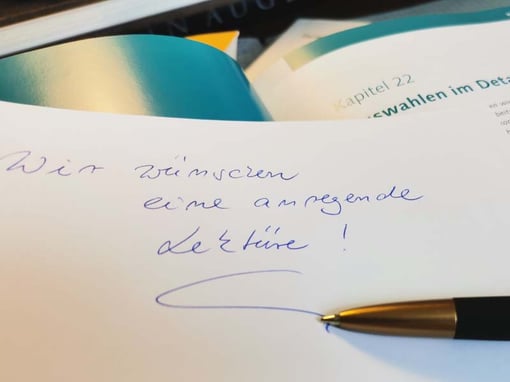 AN AUG
Kapitel 22
swahlen im Deta
Wir wünschen
eine anregende
Lektüre !